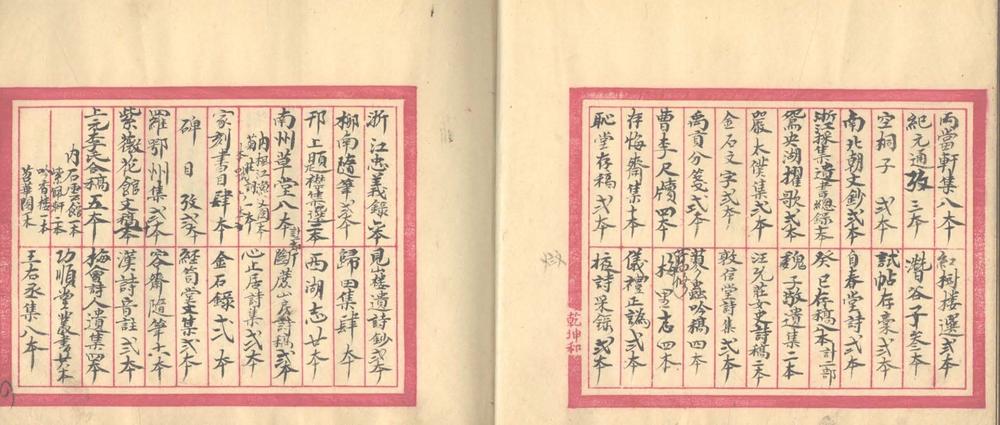 兩當軒集八本
紀元通攷 三本
空桐子 弍本
南北朝文鈔弍本
浙江採集遺書總錄本
鴛央湖櫂歌弍本
嚴太僕集弍本
金石文字弍本
禹貢分箋弍本
曹李尺牘四本
存悔齋集十本
恥堂存稿 弍本
紅樹樓選弍本
潛谷子叁本
試帖存豪弍本
自春堂詩弍本
癸巳存稿八本計二部
魏子敬遺集二本
汪允莊女史詩稿二本
敦信堂詩集弍本
蟲吟稿四本
梅里志四本
儀禮正譌弍本
詩采錄弍本
乾坤和
浙江忠義錄本
柳南隨筆本
邗上題襟集選本
南州草堂八本
家刻書目肆本
碑目攷
羅鄂州集弍本
紫薇花館文稿本
上元李氏合稿五本
內石雲館一本
吟香樓一本
見山樓遺詩鈔弍本
歸田集肆本
西湖志廿本
斷蔗山房詩稿弍本
心止居詩集弍本
金石錄弍本
經笥堂文集弍本
容齋隨筆六本
漢詩音註弍本
梅會詩人遺集四本
功順堂叢書廿本
王右丞集八本